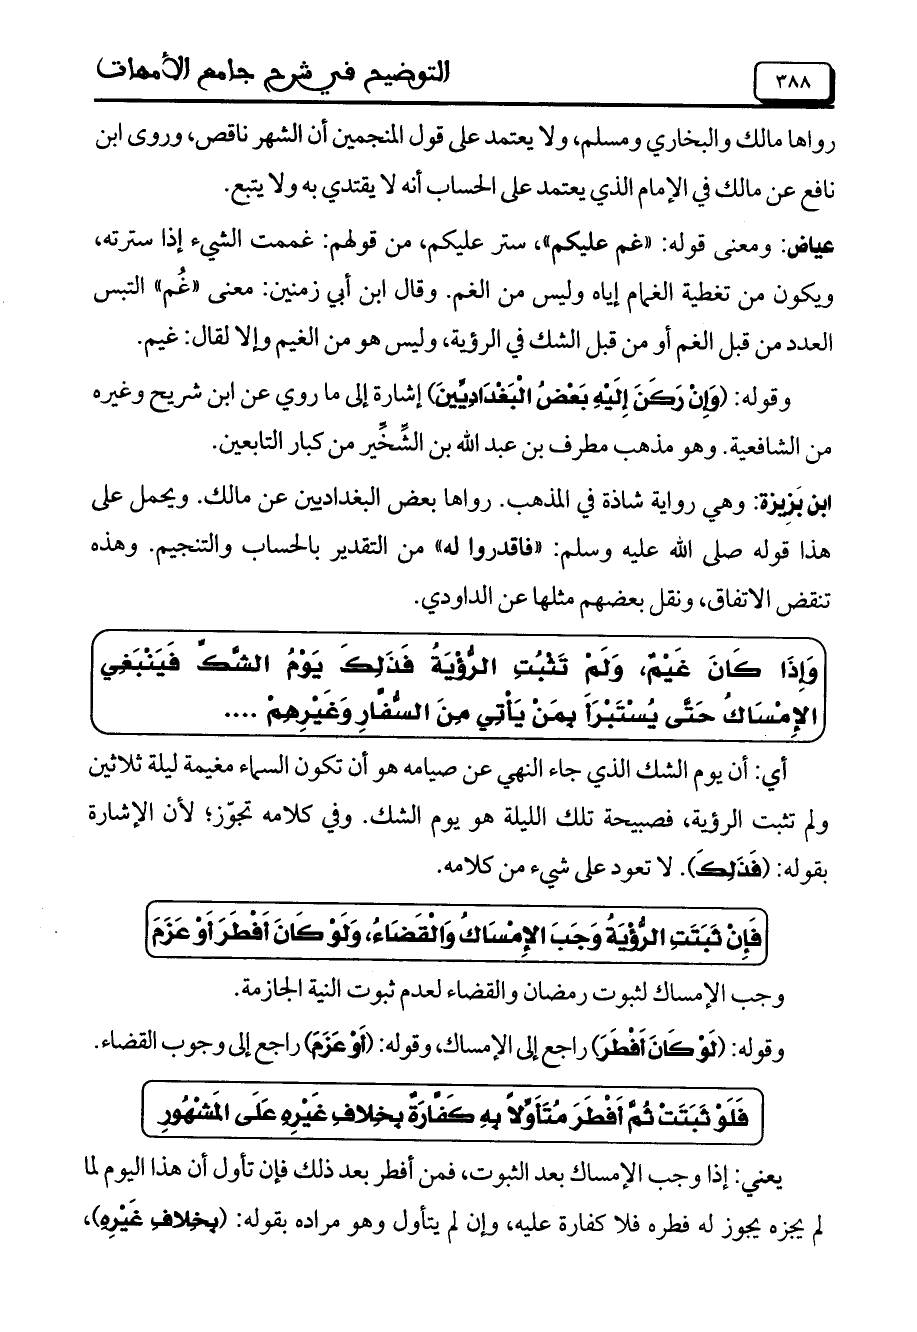 ٣٨٨
التوضيح في شرح جامع الأمهات
رواها مالك والبخاري ومسلم، ولا يعتمد على قول المنجمين أن الشهر ناقص، وروى ابن
نافع عن مالك في الإمام الذي يعتمد على الحساب أنه لا يقتدي به ولا يتبع.
عياض: ومعنى قوله: «غم عليكم»، ستر عليكم، من قولهم: غممت الشيء إذا سترته،
ويكون من تغطية الغمام إياه وليس من الغم. وقال ابن أبي زمنين: معنى «غُم» التبس
العدد من قبل الغم أو من قبل الشك في الرؤية، وليس هو من الغيم وإلا لقال: غيم.
وقوله: (وَإِنْ رَكَنَ إِلَيْهِ بَعْضُ الْبَغْدَادِيِّينَ) إشارة إلى ما روي عن ابن شريح وغيره
من الشافعية. وهو مذهب مطرف بن عبد الله بن الشِّخِّير من كبار التابعين.
ابن بَزِيزة: وهي رواية شاذة في المذهب. رواها بعض البغداديين عن مالك. ويحمل على
هذا قوله صلى الله عليه وسلم: «فاقدروا له» من التقدير بالحساب والتنجيم. وهذه
تنقض الاتفاق، ونقل بعضهم مثلها عن الداودي.
وَإِذَا كَانَ غَيْمٌ، وَلَمْ تَثْبُتِ الرُّؤْيَةُ فَذَلِكَ يَوْمُ الشَّكِّ فَيَنْبَغِي
الإِمْسَاكُ حَتَّى يُسْتَبْرَأَ بِمَنْ يَأْتِي مِنَ السُّفَّارِ وَغَيْرِهِمْ ....
أي: أن يوم الشك الذي جاء النهي عن صيامه هو أن تكون السماء مغيمة ليلة ثلاثين
ولم تثبت الرؤية، فصبيحة تلك الليلة هو يوم الشك. وفي كلامه تجوّز؛ لأن الإشارة
بقوله: (فَذَلِكَ). لا تعود على شيء من كلامه.
فَإِنْ ثَبَتَتِ الرُّؤْيَةُ وَجَبَ الإِمْسَاكُ وَالْقَضَاءُ، وَلَوْ كَانَ أَفْطَرَ أَوْ عَزَمَ
وجب الإمساك لثبوت رمضان والقضاء لعدم ثبوت النية الجازمة.
وقوله: (لَوْ كَانَ أَفْطَرَ) راجع إلى الإمساك، وقوله: (أَوْ عَزَمَ) راجع إلى وجوب القضاء.
فَلَوْ ثَبَتَتْ ثُمَّ أَفْطَرَ مُتَأَوِّلاً بِهِ كَفَّارَةٌ بِخِلافِ غَيْرِهِ عَلَى المَشْهُورِ
يعني: إذا وجب الإمساك بعد الثبوت، فمن أفطر بعد ذلك فإن تأول أن هذا اليوم لما
لم يجزه يجوز له فطره فلا كفارة عليه، وإن لم يتأول وهو مراده بقوله: (بِخلافِ غَيْرِهِ)،